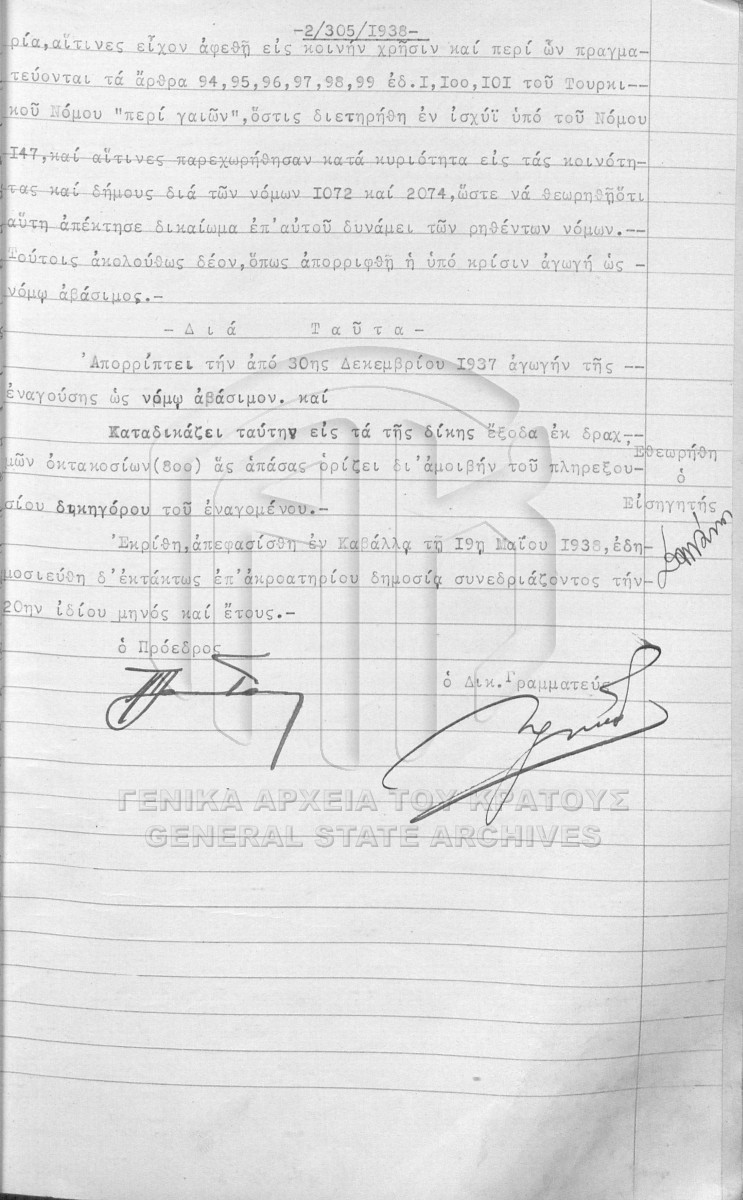 -2/305/1938-
ρία,αἵτινες εἶχον ἀφεθῆ εἰς κοινήν χρῆσιν καί περί ὧν πραγμα-
τεύονται τά ἄρθρα 94,95,96,97,98,99 ἐδ.Ι,Ιοο,ΙΟΙ τοῦ Τουρκι--
κοῦ Νόμου "περί γαιῶν",ὅστις διετηρήθη ἐν ἰσχύϊ ὑπό τοῦ Νόμου
Ι47,καί αἵτινες παρεχωρήθησαν κατά κυριότητα εἰς τάς κοινότη-
τας καί δήμους διά τῶν νόμων Ι072 καί 2074,ὥστε νά θεωρηθῆὅτι
αὕτη ἀπέκτησε δικαίωμα ἐπ'αὐτοῦ δυνάμει τῶν ρηθέντων νόμων.--
Τούτοις ἀκολούθως δέον,ὅπως ἀπορριφθῆ ἡ ὑπό κρίσιν ἀγωγή ὡς -
νόμῳ ἀβάσιμος.-
-Διά Ταῦτα-
'Απορρίπτει τήν ἀπό 30ης Δεκεμβρίου Ι937 ἀγωγήν τῆς --
ἐναγούσης ὡς νόμῳ ἀβάσιμον. καί
Καταδικάζει ταύτην εἰς τά τῆς δίκης ἔξοδα ἐκ δραχ--
μῶν ὀκτακοσίων(8οο) ἅς ἁπάσας ὁρίζει δι'ἀμοιβήν τοῦ πληρεξου-
σίου δικηγόρου τοῦ ἐναγομένου.-
'Εκρίθη,ἀπεφασίσθη ἐν Καβάλλᾳ τῇ Ι9ῃ Μαΐου Ι938,ἐδη-
μοσιεύθη δ'ἐκτάκτως ἐπ'ἀκροατηρίου δημοσίᾳ συνεδριάζοντος τήν
20ην ἰδίου μηνός καί ἔτους.-
'Εθεωρήθη
ὁ
Εἰσηγητής
ὁ Πρόεδρος
ὁ Δικ.Γραμματεύς
ΓΕΝΙΚΑ ΑΡΧΕΙΑ ΤΟΥ ΚΡΑΤΟΥΣ
GENERAL STATE ARCHIVES